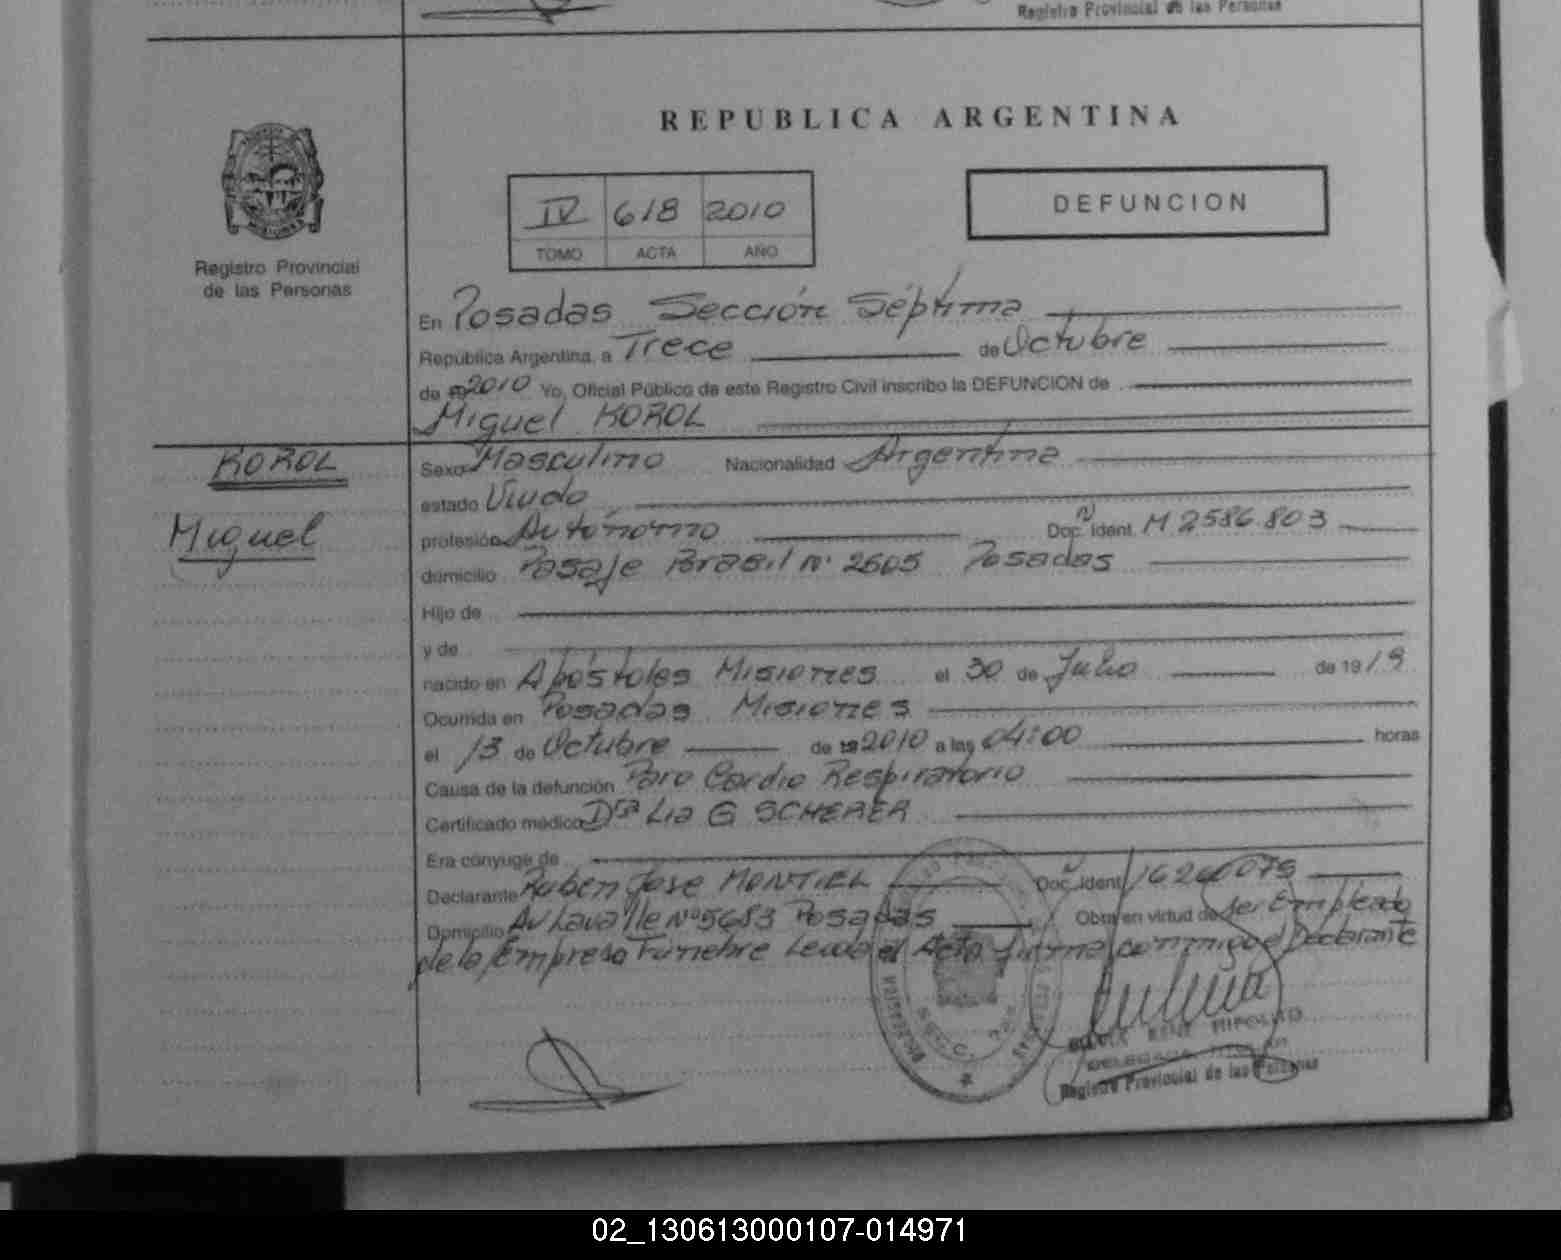 Registro Provincial de las Personas
REPUBLICA ARGENTINA
IV 618 2010
TOMO ACTA AÑO
DEFUNCION
Registro Provincial
de las Personas
En Posadas Sección Séptima
República Argentina, a Trece de Octubre
de 19 2010 Yo, Oficial Público de este Registro Civil inscribo la DEFUNCION de
Miguel KOROL
KOROL
Miguel
Sexo Masculino Nacionalidad Argentina
estado Viudo
profesión Autónomo Doc. Ident. M 2586.803
domicilio Pasaje Brasil N° 2605 Posadas
Hijo de
y de
nacido en Apóstoles Misiones el 30 de Julio de 1919
Ocurrida en Posadas Misiones
el 13 de Octubre de 19 2010 a las 04:00 horas
Causa de la defunción Paro Cardio Respiratorio
Certificado médico Dra Lia G SCHERER
Era cónyuge de
Declarante Ruben Jose MONTIEL Doc. Ident. 16260079
Domicilio Av Lavalle N° 5683 Posadas Obra en virtud de ser Empleado
de la Empresa Funebre Leida el Acta firma conmigo Declarante
RENE HIPOLITO
Registro Provincial de las Personas
02_130613000107-014971